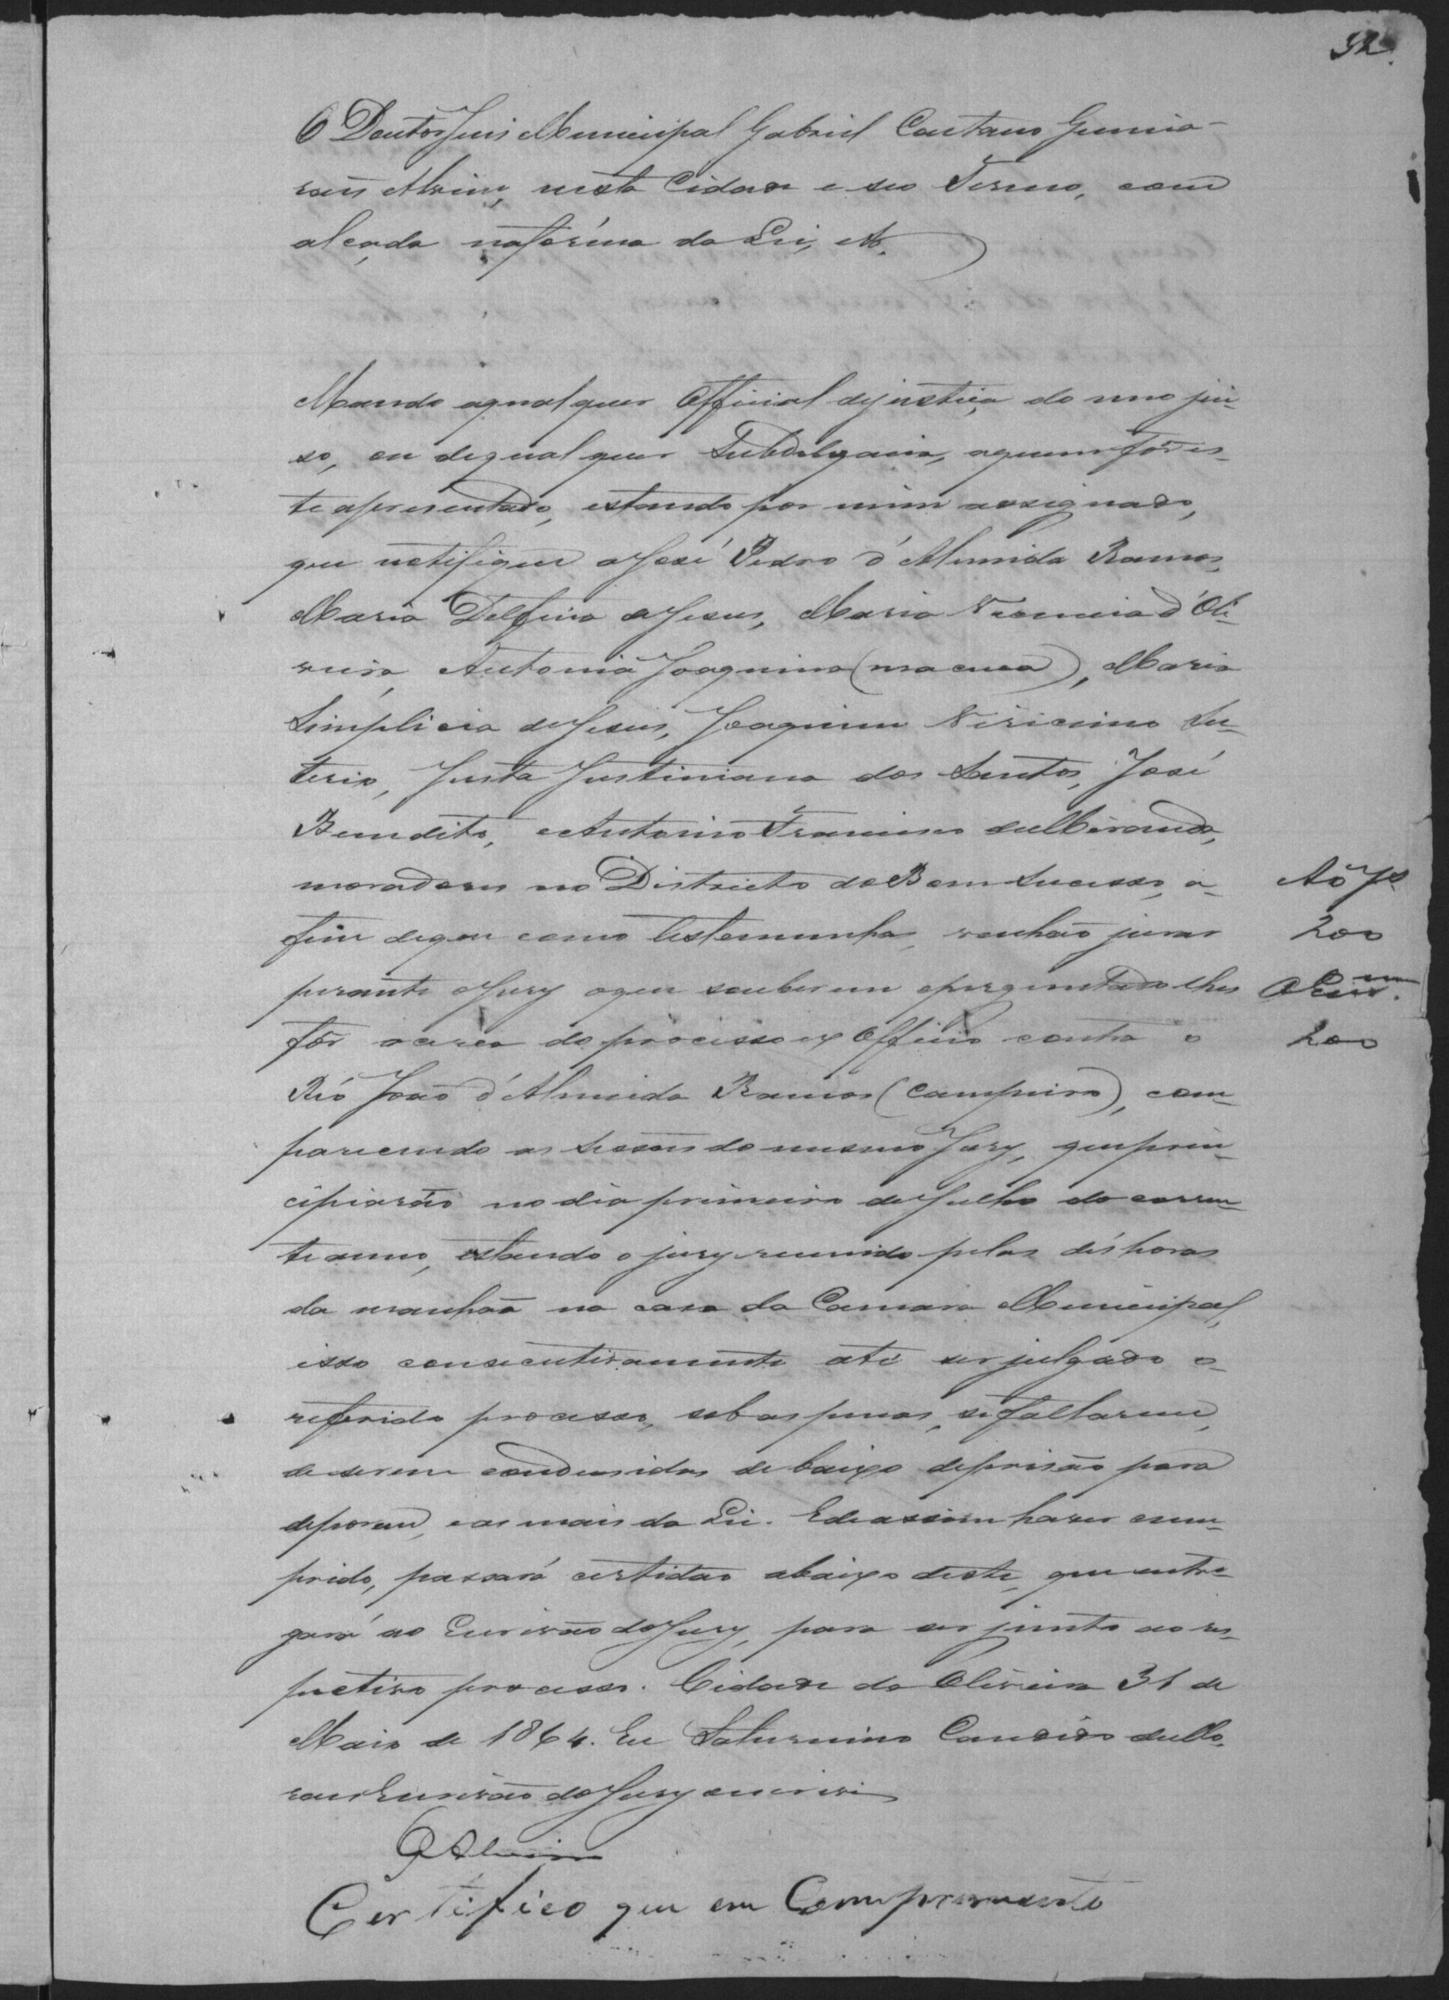 52
O Doutor Juis Municipal Gabriel Caetano Guima-
raes Alvim, nesta Cidade e seo Termo, com
alçada na fórma da Lei, etc.
Mando aqualquer Official dejustiça do meo jui-
so, ou dequalquer Subdelegacia, aquem fôr es-
te apresentado, estando por mim assignado,
que notifique a José Pedro d'Almeida Ramos,
Maria Delfina de Jesus, Maria Veronica d'Oli-
veira, Antonia Joaquina (macuca), Maria
Simplicia de Jesus, Joaquim Viriciimo Lu-
terio, Justa Justiniana dos Santos, José
Benedito, e Antonio Francisco de Miranda,
moradores no Districto do Bom Sucesso, a-
fim deque como testemunhas, venhão jurar
perante o Jury oque souberem eperguntado lhes
fôr acerca do processo ex Officio contra o
Réo João d'Almeida Ramos (Campeiro), com-
parecendo as Sessões do mesmo Jury, que prin-
cipiarão no dia primeiro de Julho do corren-
te anno, estando o jury reunido pelas dés horas
da manhaã na casa da Camara Municipal,
isso consecutivamente até ser julgado o
referido processo, sob as penas, se faltarem,
de serem condusidas debaixo deprisão para
deporem, e as mais da Lei. E de assim haver cum-
prido, passará certidão abaixo deste, que entre-
gará ao Escrivão do Jury, para ser junto ao res-
pectivo processo. Cidade da Oliveira 31 de
Maio de 1864. Eu Saturnino Candido de Mo-
raes Escrivão do Jury o escrevi
GAlvim
Certifico que em Comprimento
Ao Js
200
200